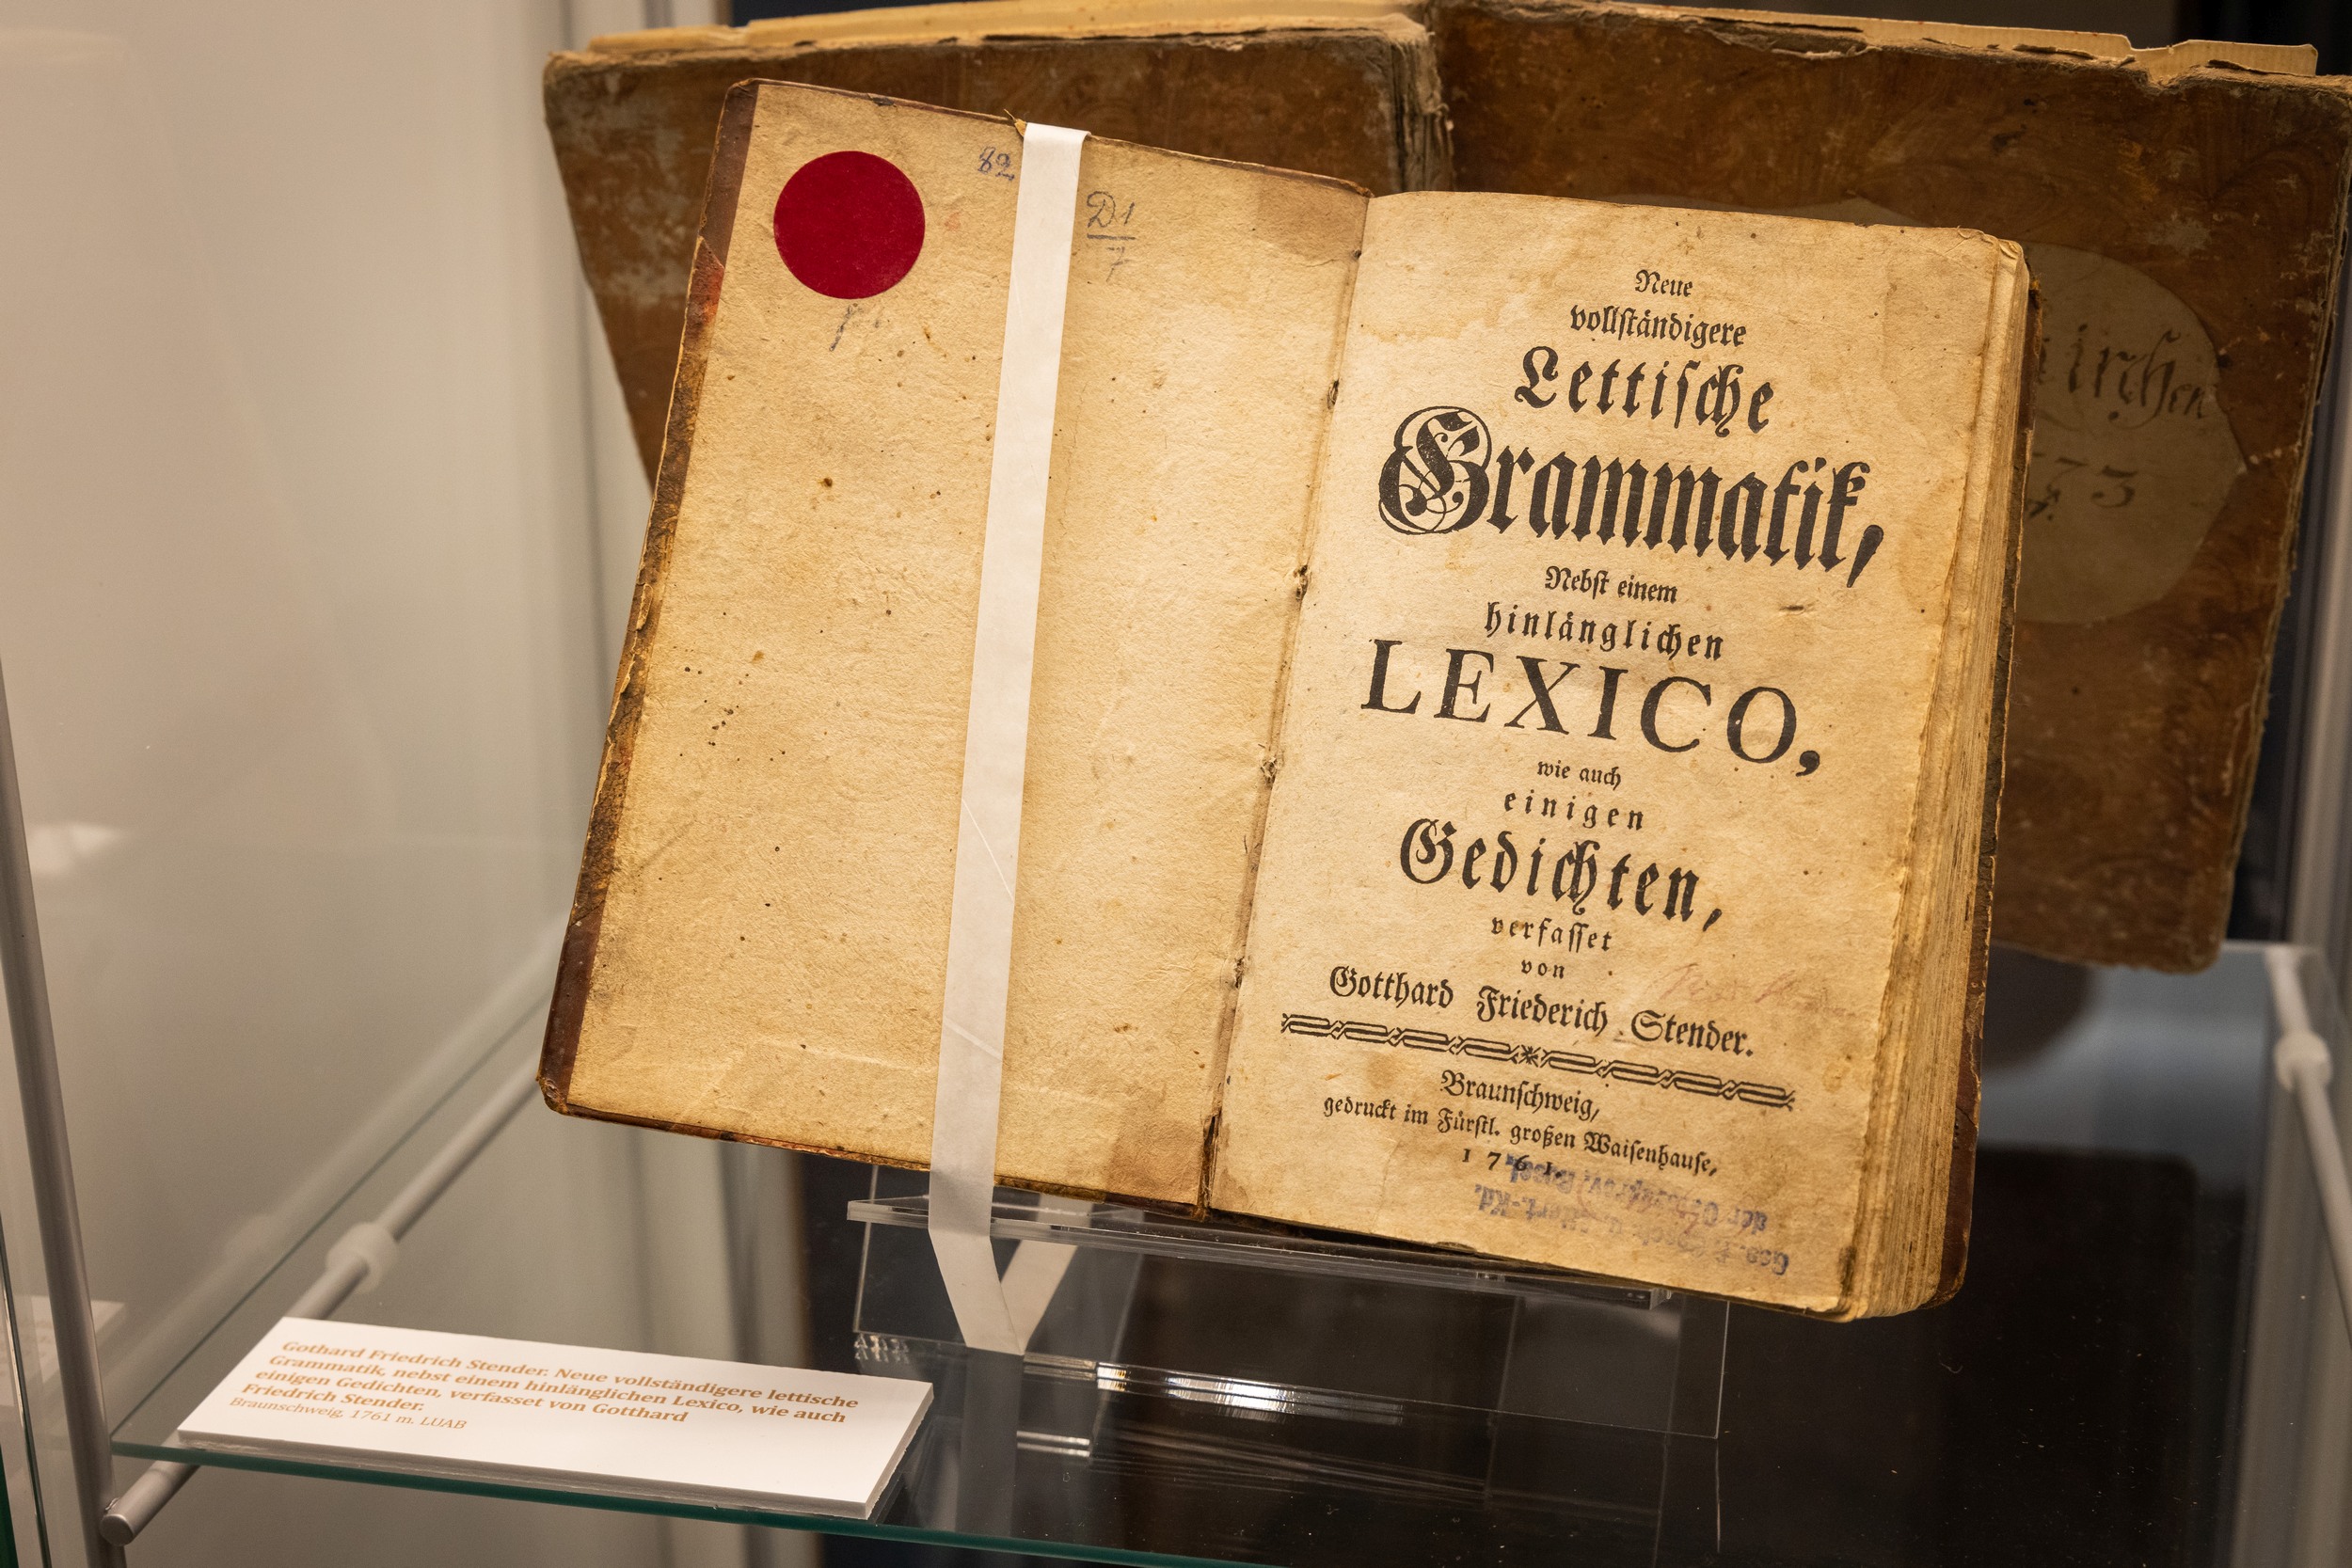 82
D1
7
Neue
vollständigere
Lettische
Grammatik,
Nebst einem
hinlänglichen
LEXICO,
wie auch
einigen
Gedichten,
verfasset
von
Gotthard Friederich Stender.
Braunschweig,
gedruckt im Fürstl. großen Waisenhause,
1761.
Gothard Friedrich Stender. Neue vollständigere lettische
Grammatik, nebst einem hinlänglichen Lexico, wie auch
einigen Gedichten, verfasset von Gotthard
Friedrich Stender.
Braunschweig, 1761 m. LUAB